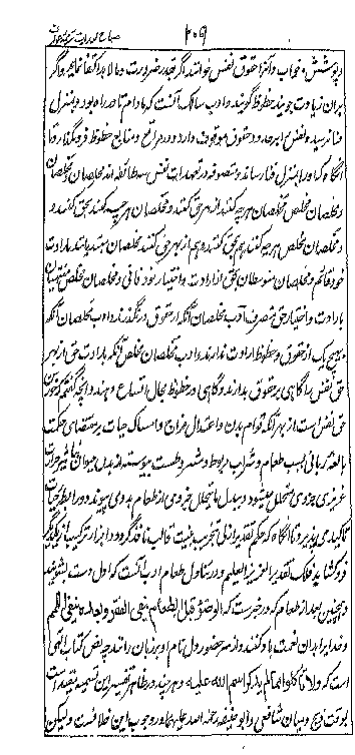 ۲۰۹
و پوشش و خواب و آنرا حقوق نفس خوانند اگر بقدر ضرورت و مالابد اکتفا نمایند و اگر
بران زیادت جویند حظوظ گویند و ادب سالک آنست که مادام تا در راه بود و بمنزل
فنا نرسیده نفس را بر حد حقوق موقوف دارد و در مراتع و منابع حظوظ فرو نگذارد تا
آنگاه که او را بمنزل فنا رساند و متصوفه در تعهدات نفس سه طائفه اند مخلصان و مخلصان
و مخلصان مخلص مخلصان هر چه کنند از بهر حق کنند و مخلصان هر چه کنند بحق کنند و
و مخلصان مخلص هر چه کنند هم بحق کنند و هم از بهر حق کنند مخلصان مبتدیانند بارادت
خود قائم و مخلصان متوسطان بحق از ارادت و اختیار خود فانی و مخلصان مخلص منتهیان
بارادت و اختیار حق متصرف ادب مخلصان آنکه از حقوق در نگذرند و ادب مخلصان آنکه
بهیچ یک از حقوق و حظوظ ارادت ندارند و ادب مخلصان مخلص آنکه بارادت حق از بهر
حق نفس را گاهی بر حقوق بدارند و گاهی در حظوظ مجال اتساع دهند و آنچه گفتیم که خوردن
حق نفس است از بهر آنکه قوام بدن و اعتدال مزاج و امساک حیات بر مقتضای حکمت
بالغه ربانی بسبب طعام و شراب مربوط و مشروط است پیوسته از بدن حیوان بتاثیر حرارت
غریزی جزوی متحلل میشود و بدل ما یتحلل جزوی از طعام بدو می پیوندد و رابطه حیات
تاکید می پذیرد تا آنگاه که حکم تقدیر ازلی بتخریب بنیت قالب نافذ گردد و اجزای ترکیب از یکدیگر
فرو گشاید ذلک تقدیر العزیز العلیم و در تناول طعام ادب آنست که اول دست بشویند
و همچنین بعد از طعام که در خبر است که الوضوء قبل الطعام ینفی الفقر و بعده ینفی اللمم
و خدا را بدان نعمت یاد کنند و از سر حضور دل نام او بر زبان رانند چه نص کتاب الهی
است که ولا تاکلوا مما لم یذکر اسم الله علیه و هر چند در ظاهر تفسیر این تسمیه مقید است
بوقت ذبح و میان شافعی و ابو حنیفه رحمة الله علیهما در وجوب این خلافست ولیکن